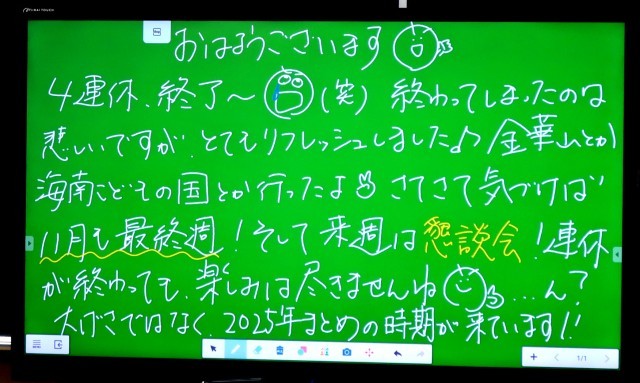 おはようございます
4連休、終了〜(笑) 終わってしまったのは
悲しいですが、とてもリフレッシュしました♪ 金華山とか
海南こどもの国とか行ったよ さてさて気づけば
11月も最終週!そして来週は懇談会!連休
が終わっても、楽しみは尽きませんね…ん?
大げさではなく、2025年まとめの時期が来ています!!
1/1